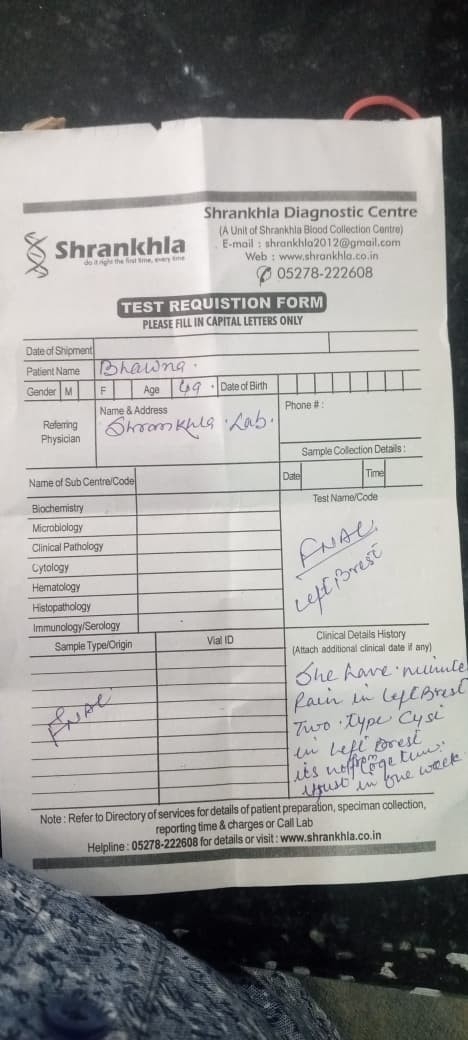 Shrankhla Diagnostic Centre
(A Unit of Shrankhla Blood Collection Centre)
E-mail : shrankhla2012@gmail.com
Web : www.shrankhla.co.in
05278-222608
Shrankhla
do it right the first time, every time
TEST REQUISTION FORM
PLEASE FILL IN CAPITAL LETTERS ONLY
Date of Shipment
Patient Name Bhawna.
Gender M F Age 49. Date of Birth
Referring Physician
Name & Address
Shrankhla. Lab.
Phone # :
Sample Collection Details :
Date Time
Name of Sub Centre/Code
Test Name/Code
FNAC
Left Brest
Biochemistry
Microbiology
Clinical Pathology
Cytology
Hematology
Histopathology
Immunology/Serology
Sample Type/Origin Vial ID
FNAC
Clinical Details History
(Attach additional clinical date if any)
She have minute
Pain in left Brest
Two type Cyst
in left Brest
its not from long time.
Just in one week.
Note : Refer to Directory of services for details of patient preparation, speciman collection,
reporting time & charges or Call Lab
Helpline : 05278-222608 for details or visit : www.shrankhla.co.in